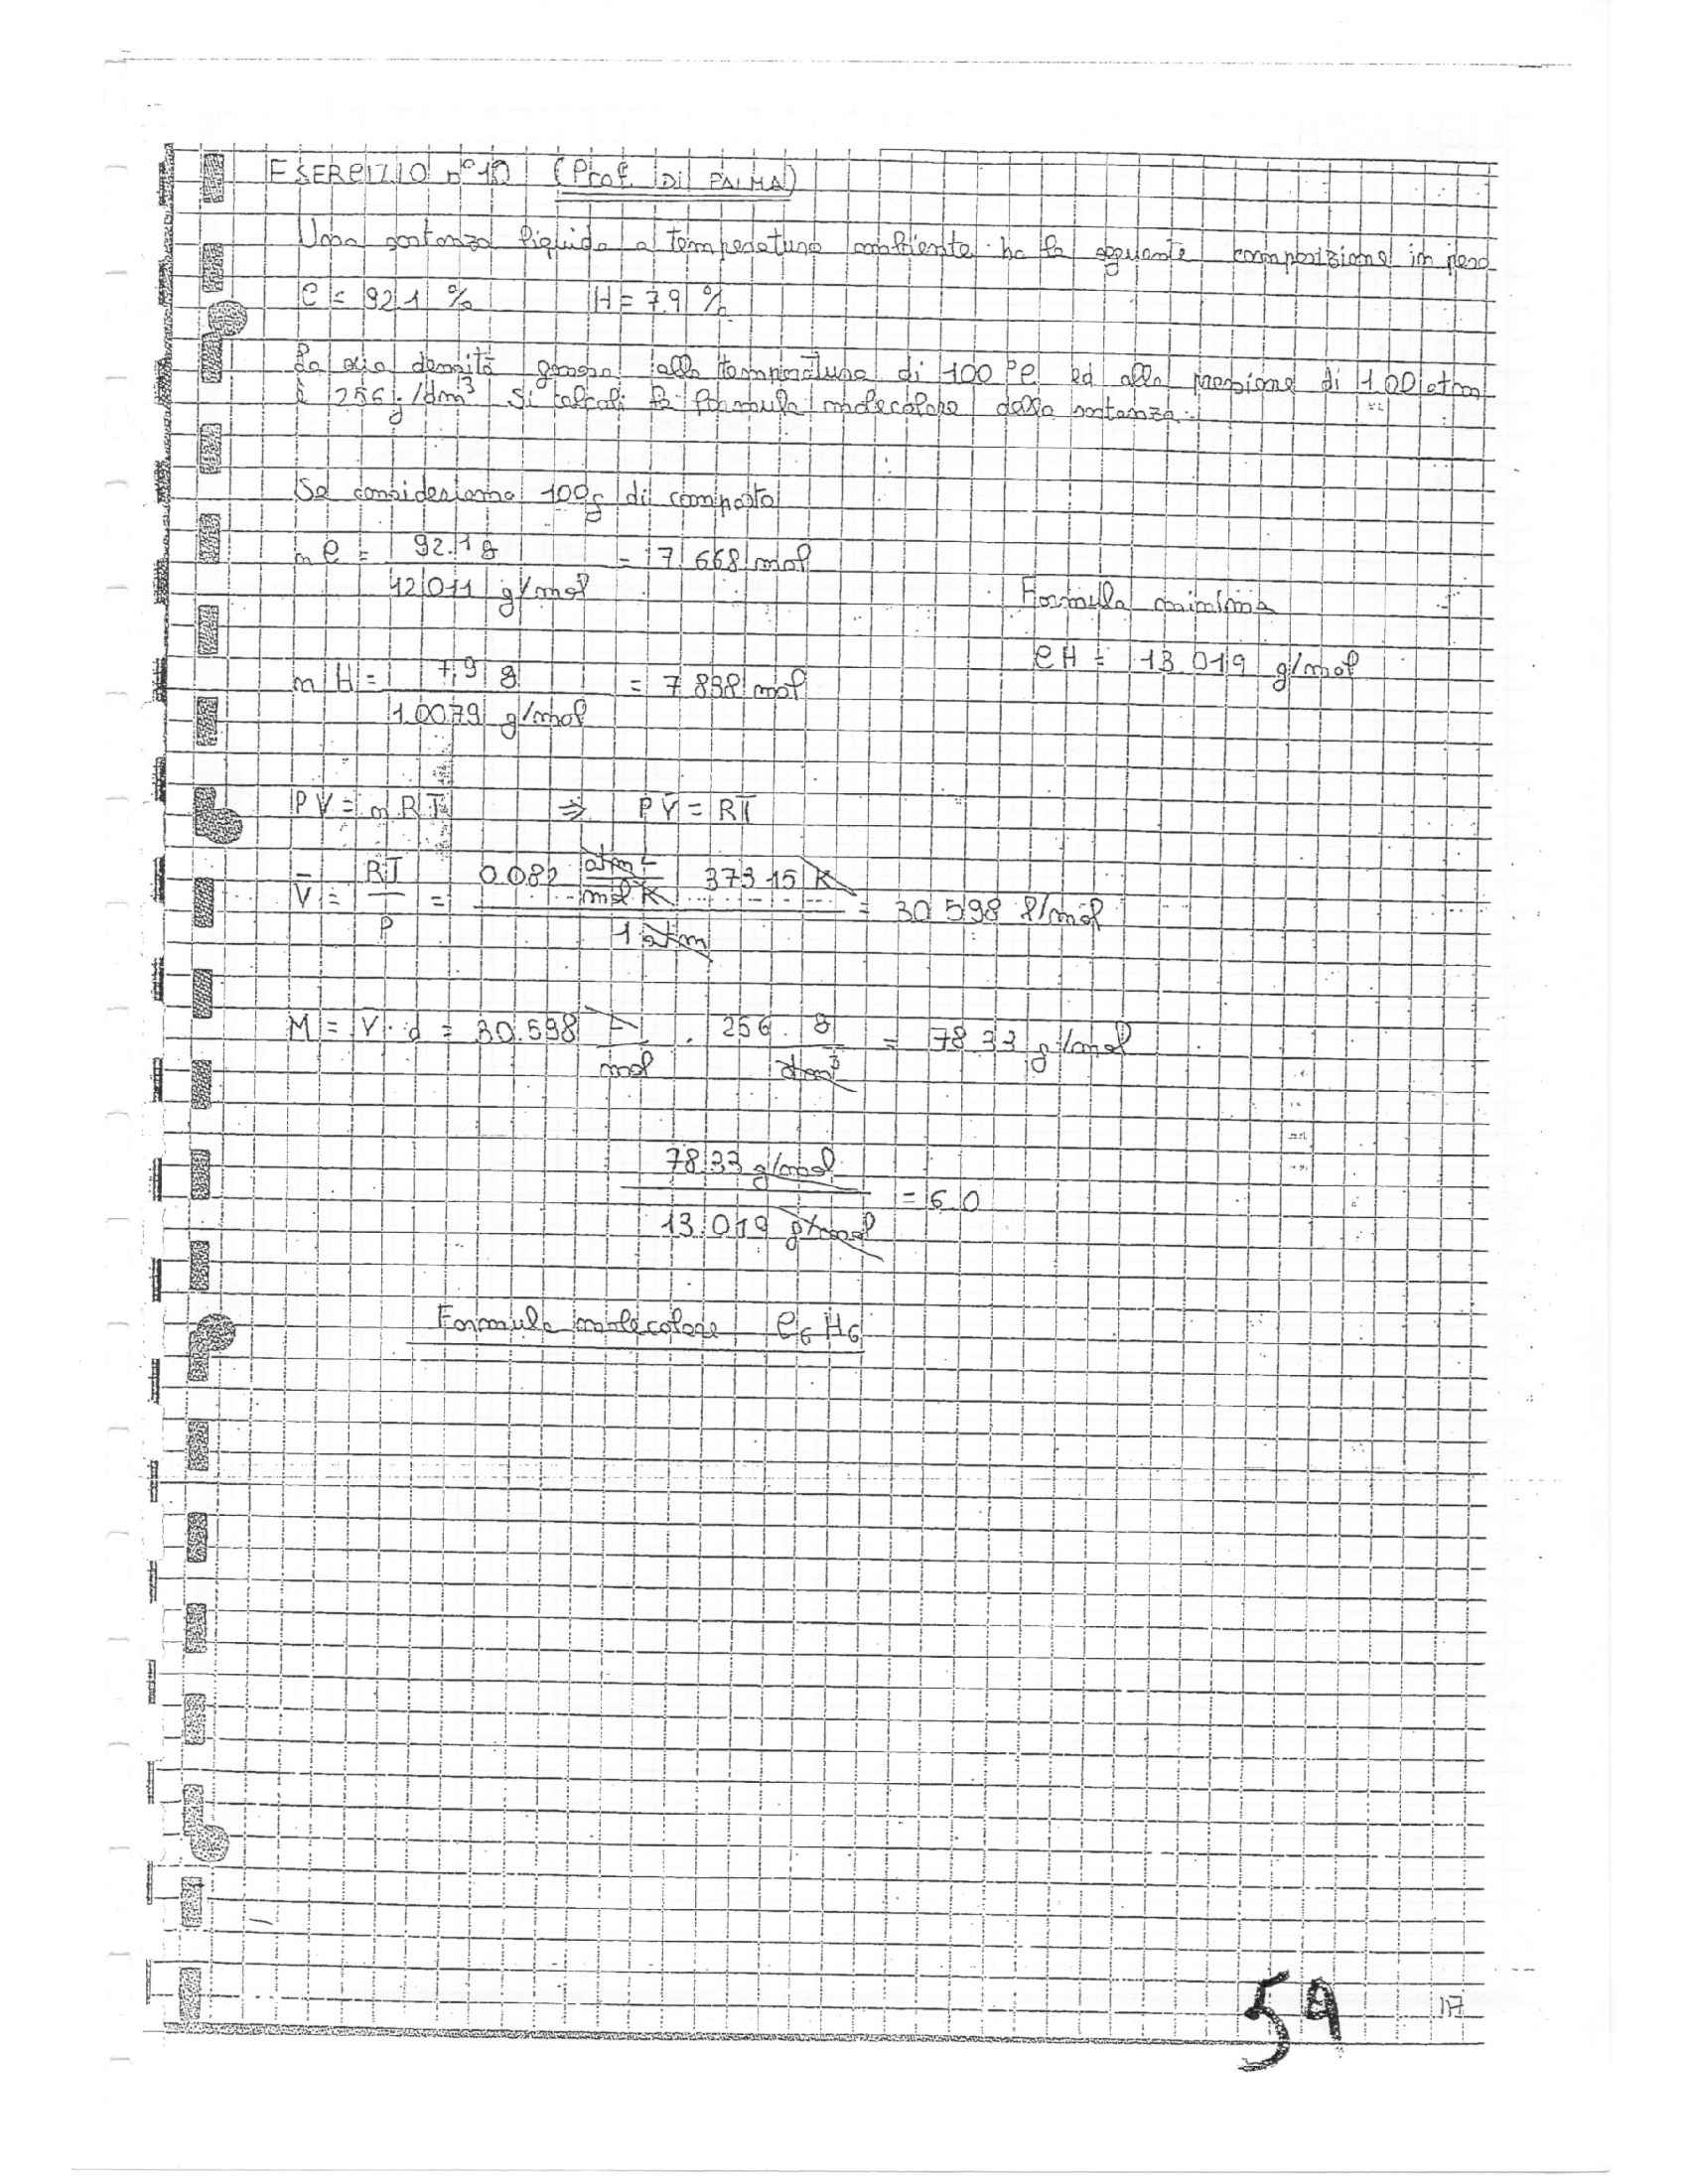 ESERCIZIO n° 10 (Prof. DI PALMA)
Una sostanza liquida a temperatura ambiente ha la seguente composizione in peso
C = 92.1 % H = 7.9 %
La sua densità gassosa alla temperatura di 100 °C ed alla pressione di 1.00 atm
è 2.56 g/dm³ Si calcoli la formula molecolare della sostanza.
Se consideriamo 100g di composto
n C = 92.1 g / 12.011 g/mol = 7.668 mol
Formula minima
n H = 7.9 g / 1.0079 g/mol = 7.838 mol
CH = 13.019 g/mol
PV = nRT ⇒ PV̄ = RT
V̄ = RT / P = 0.082 atm L / mol K 373.15 K / 1 atm = 30.598 l/mol
M = V̄ · d = 30.598 L / mol · 2.56 g / dm³ = 78.33 g/mol
78.33 g/mol / 13.019 g/mol = 6.0
Formula molecolare C₆H₆
59 17